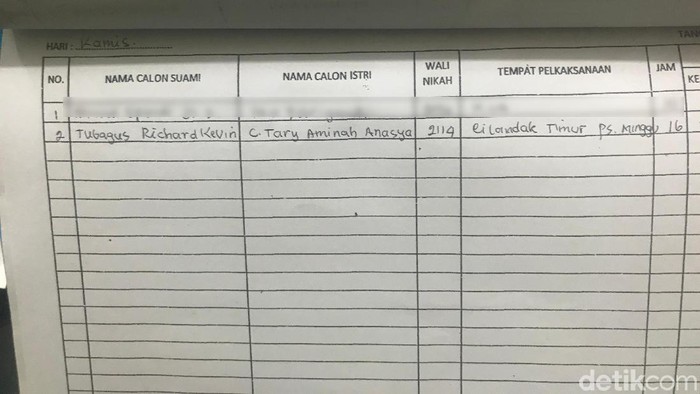 HARI : Kamis
TAN
NO. NAMA CALON SUAMI NAMA CALON ISTRI WALI NIKAH TEMPAT PELKAKSANAAN JAM KE
1
2 Tubagus Richard Kevin C. Tary Aminah Anasya 2114 Cilandak Timur Ps. Minggu 16
detikcom